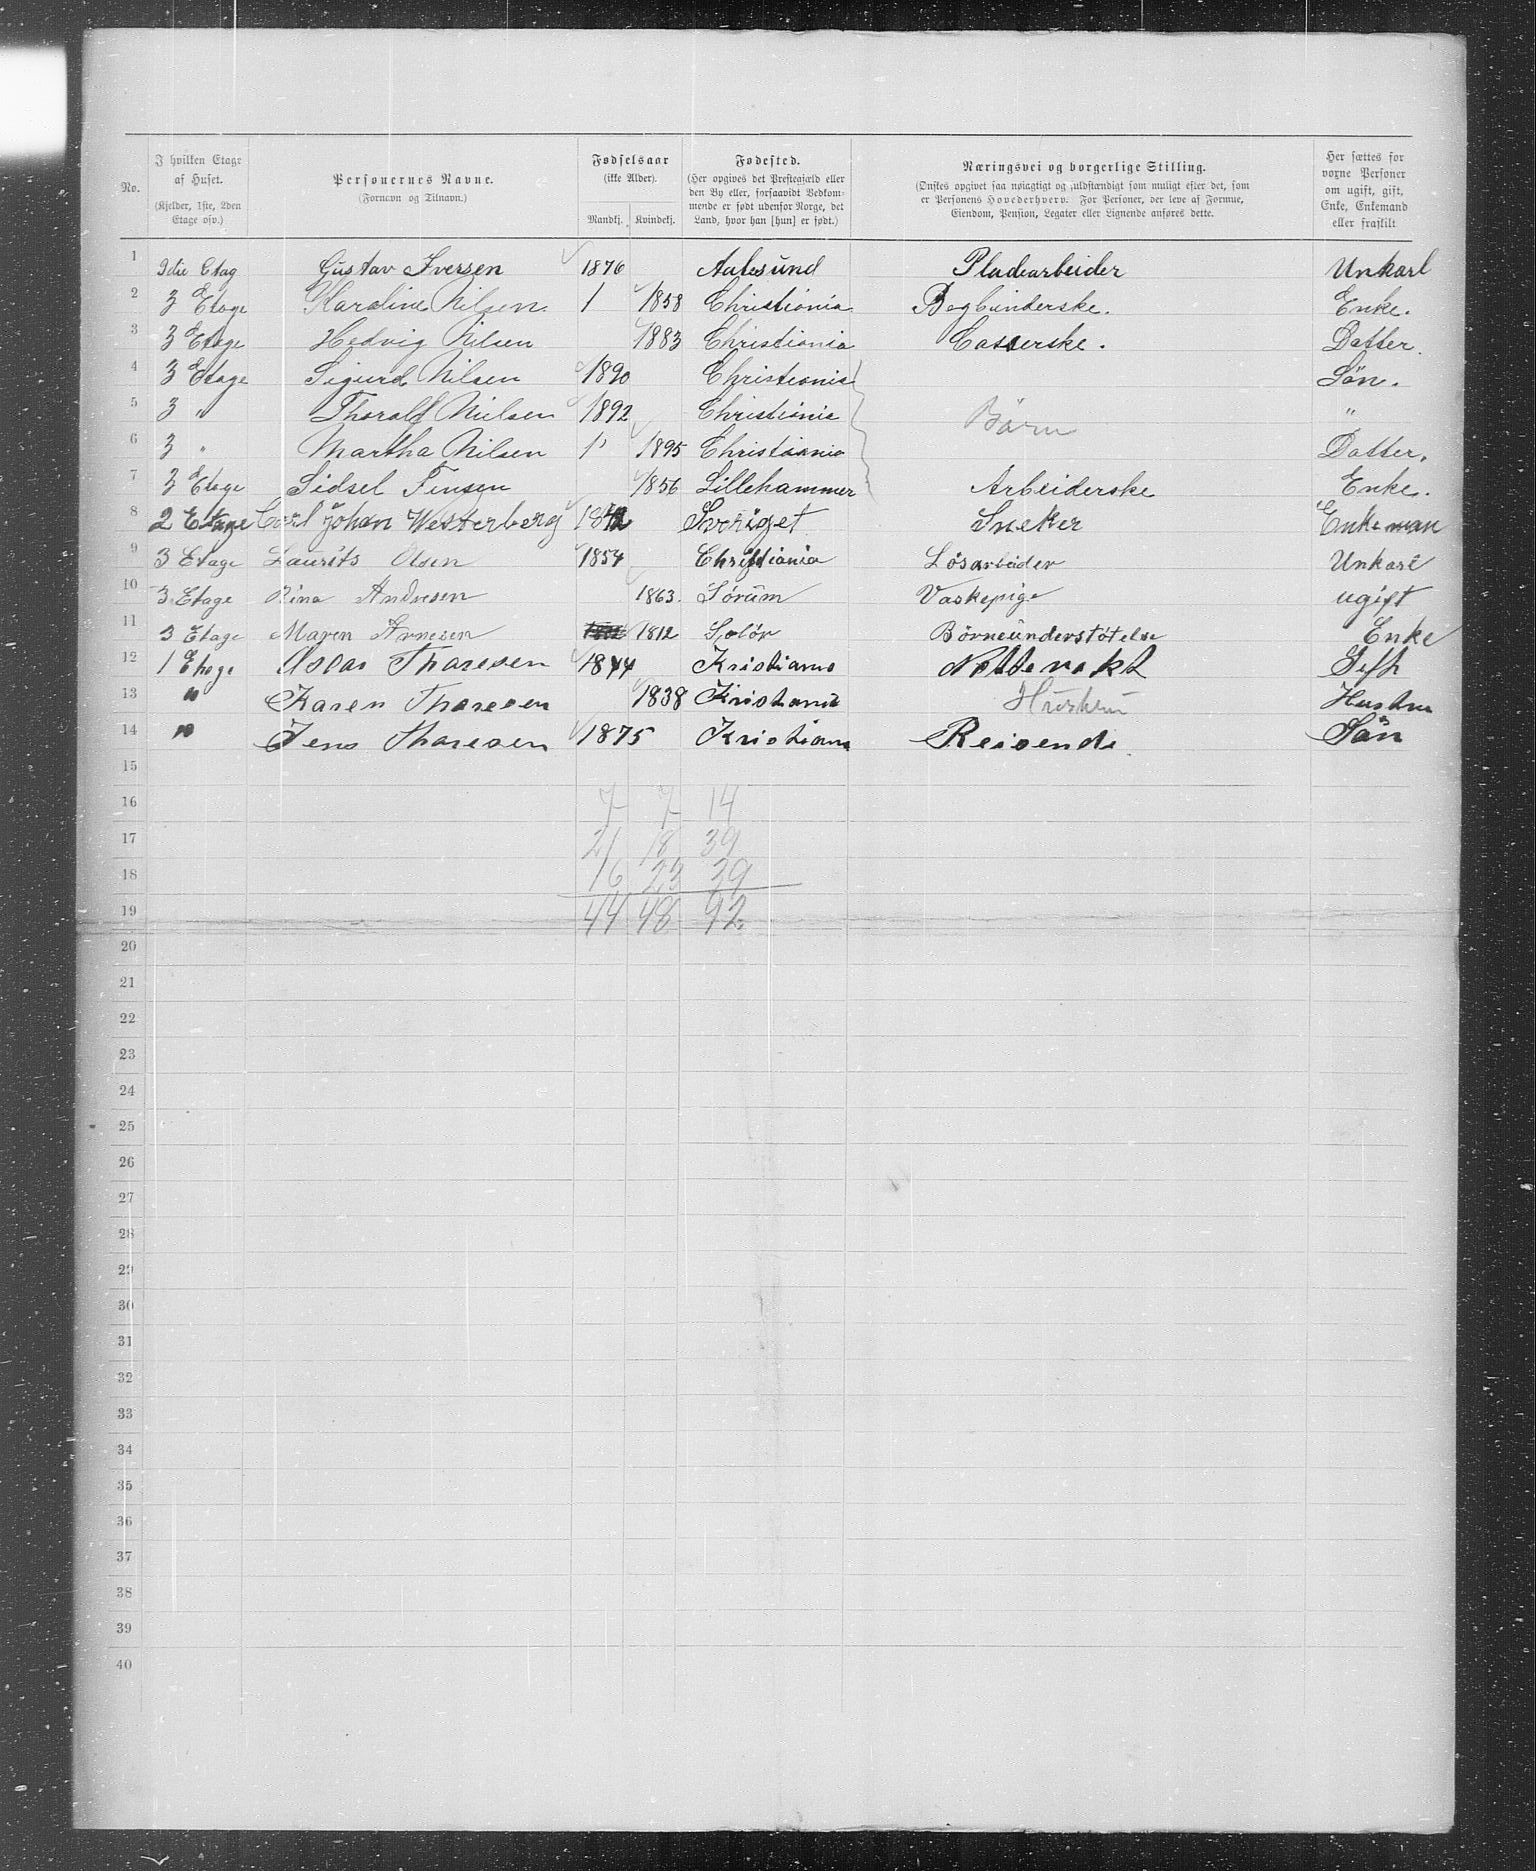 No.
I hvilken Etage af Huset.
(Kjelder, 1ste, 2den Etage osv.)
Personernes Navne.
(Fornavn og Tilnavn.)
Fødselsaar
(ikke Alder).
Mandkj. Kvindekj.
Fødested.
(Her opgives det Prestegjæld eller
den By eller, forsaavidt Vedkom-
mende er født udenfor Norge, det
Land, hvor han [hun] er født.)
Næringsvei og borgerlige Stilling.
(Ønskes opgivet saa nøiagtigt og fuldstændigt som muligt efter det, som
er Personens Hovederhverv. For Personer, der leve af Formue,
Eiendom, Pension, Legater eller Lignende anføres dette.
Her sættes for
voxne Personer
om ugift, gift,
Enke, Enkemand
eller fraskilt
1 Etag Gustav Iversen 1876 Aalesund Pladearbeider Unkarl
2 3 Etage Karoline Nilsen 1 1858 Christiania Bogbinderske. Enke.
3 3 Etage Hedvig Nilsen 1883 Christiania Datter.
4 3 Etage Sigurd Nilsen 1890 Christiania Sön.
5 3 " Thoralf Nilsen 1892 Christiania Börn "
6 3 " Martha Nilsen 1 1895 Christiania Datter.
7 3 Etage Sidsel Finsen 1856 Lillehammer Arbeiderske Enke.
8 2 Etage Carl Johan Westerberg 1842 Sveriget Sneker Enkeman
9 3 Etage Laurits Olsen 1854 Christiania Lösarbeider Unkarl
10 3 Etage Andresen 1863. Sörum Vaskepige ugift
11 3 Etage Maren Arnesen 1812 Solör Börneunderstötelse Enke
12 1 Etage Thoresen 1844 Kristiania Nattevakt Gift
13 " Karen Thoresen 1838 Kristiania Hustru
14 " Jens Thoresen 1875 Kristiania Reisende. Sön
15
16 7 7 14
17 21 18 39
18 16 23 39
19 44 48 92
20
21
22
23
24
25
26
27
28
29
30
31
32
33
34
35
36
37
38
39
40